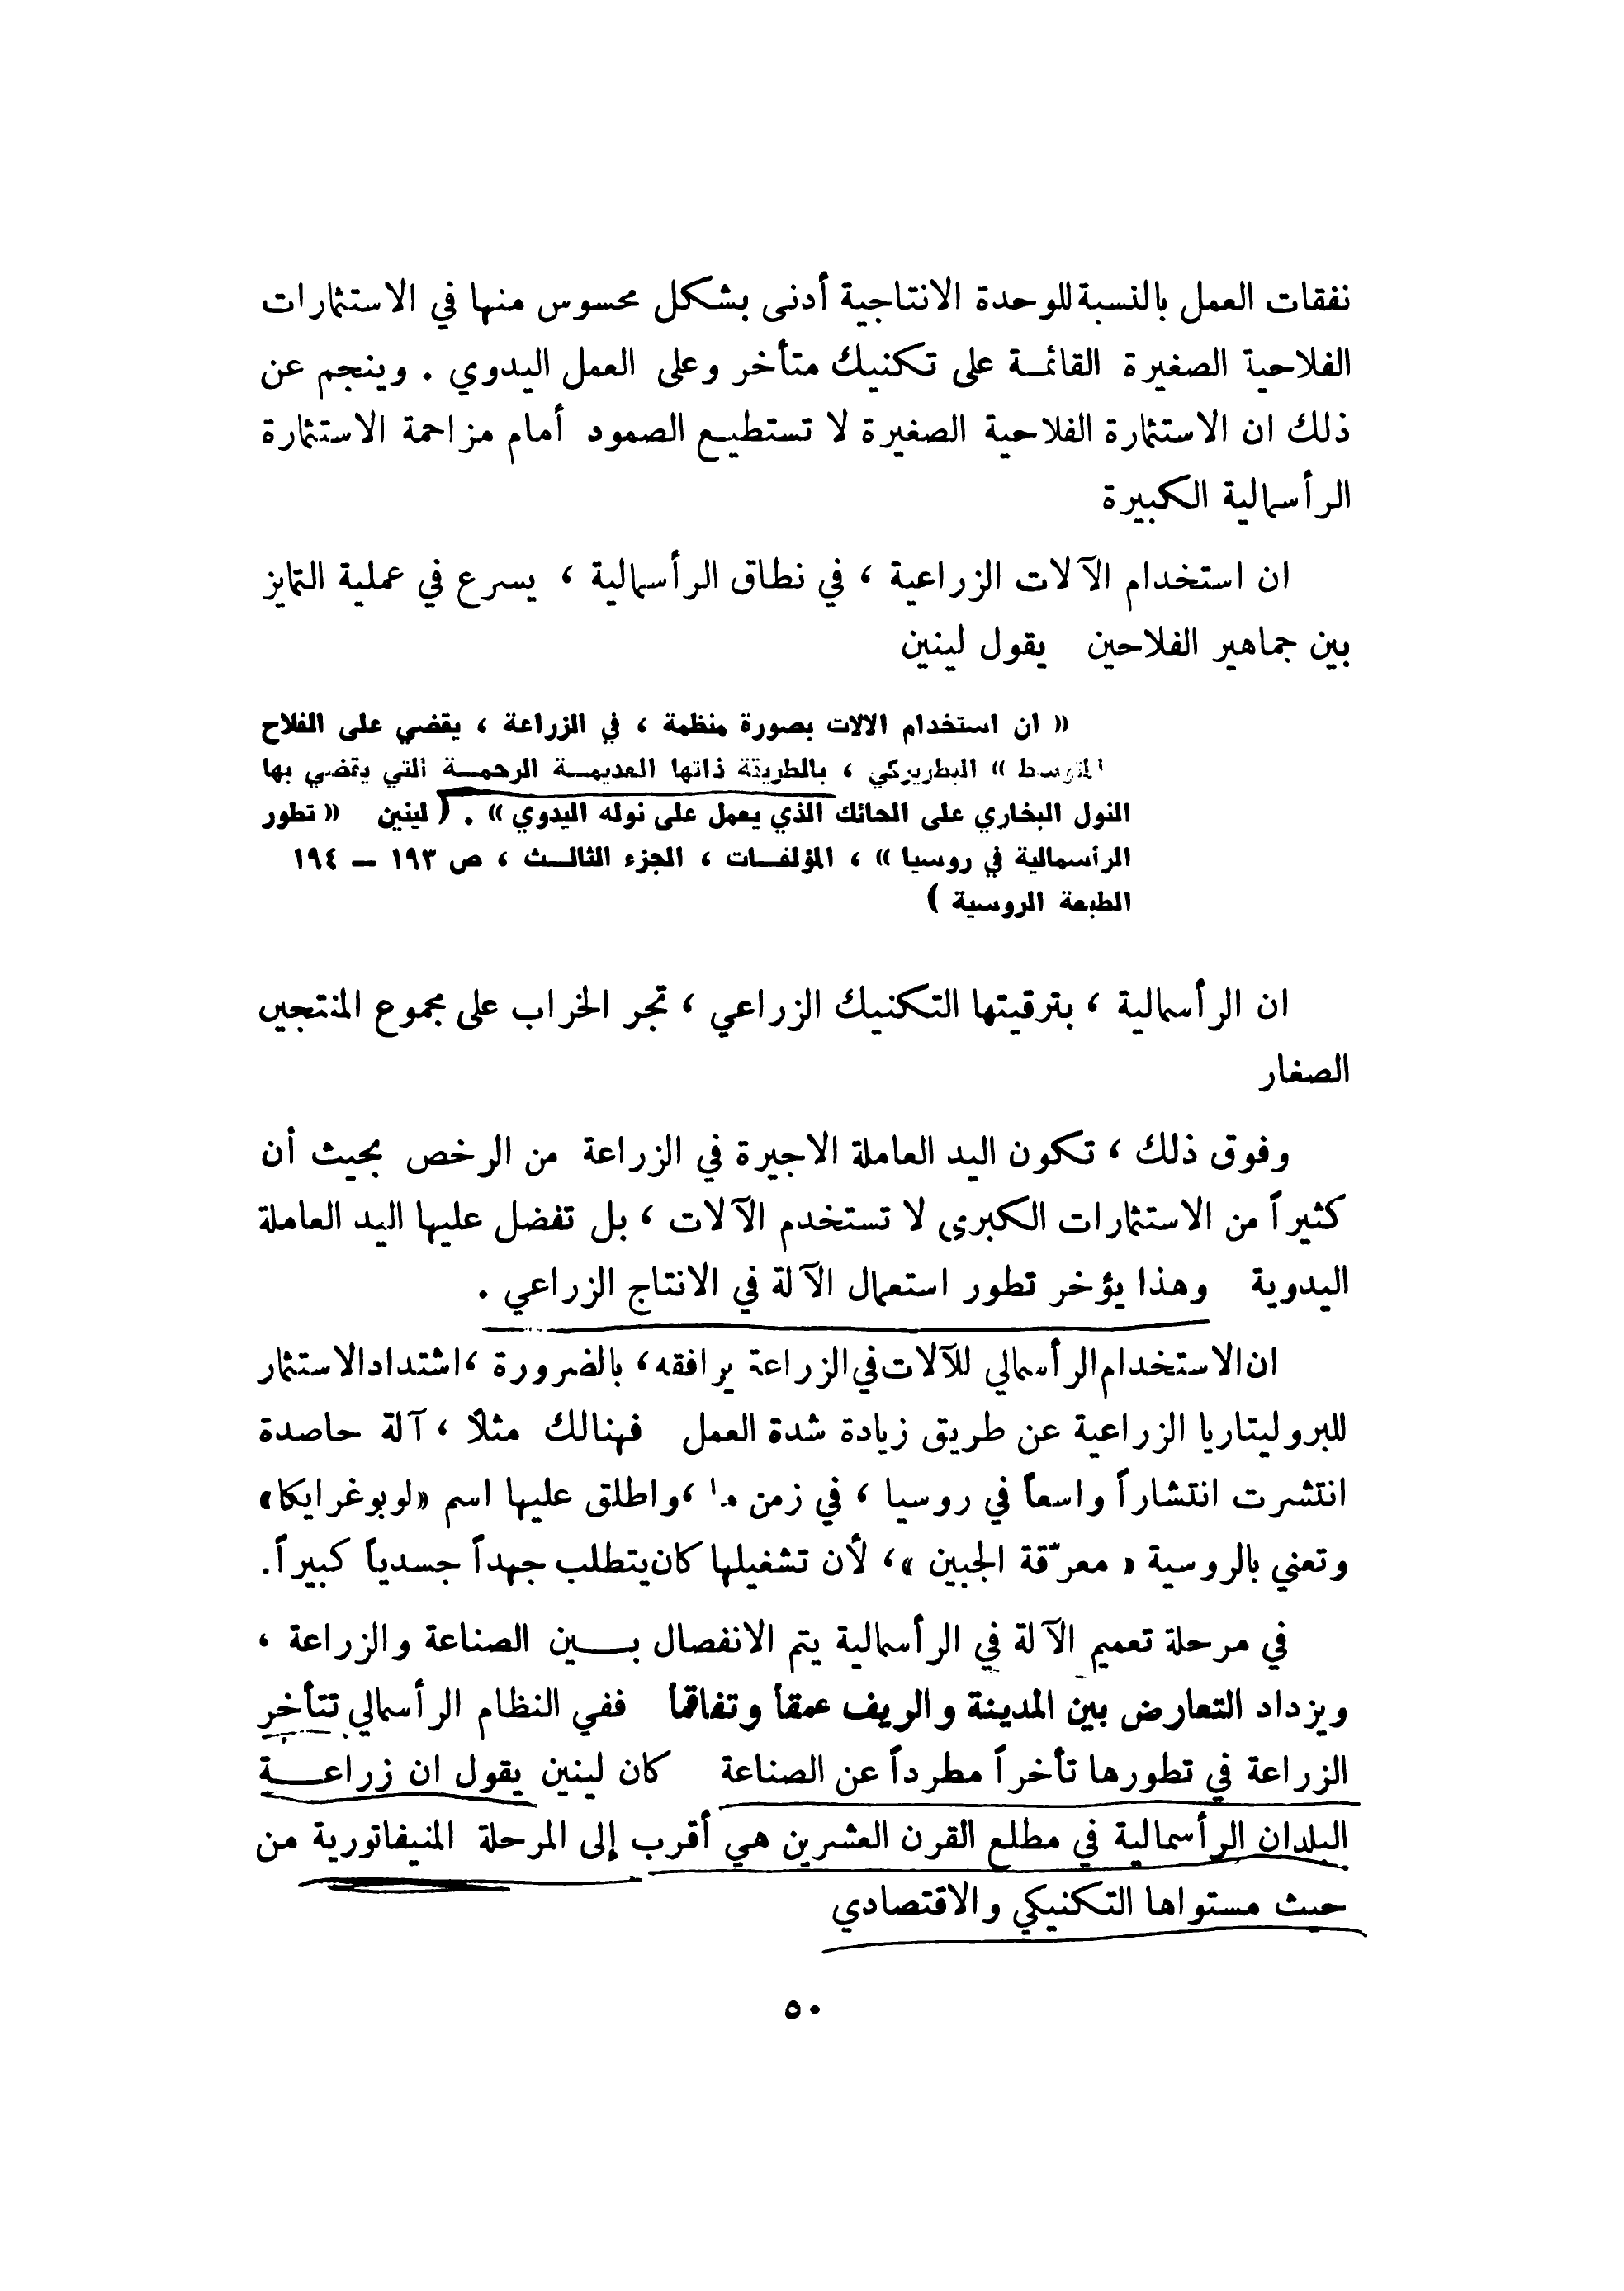 نفقات العمل بالنسبة للوحدة الانتاجية أدنى بشكل محسوس منها في الاستثمارات
الفلاحية الصغيرة القائمة على تكنيك متأخر وعلى العمل اليدوي . وينجم عن
ذلك ان الاستثمارة الفلاحية الصغيرة لا تستطيع الصمود أمام مزاحمة الاستثمارة
الرأسمالية الكبيرة
ان استخدام الآلات الزراعية ، في نطاق الرأسمالية ، يسرع في عملية التمايز
بين جماهير الفلاحين يقول لينين
« ان استخدام الالات بصورة منظمة ، في الزراعة ، يقضي على الفلاح
المتوسط » البطريركي ، بالطريقة ذاتها العديمة الرحمة التي يقضي بها
النول البخاري على الحائك الذي يعمل على نوله اليدوي » . ( لينين « تطور
الرأسمالية في روسيا » ، المؤلفات ، الجزء الثالث ، ص ١٩٣ – ١٩٤
الطبعة الروسية )
ان الرأسمالية ، بترقيتها التكنيك الزراعي ، تجر الخراب على مجموع المنتجين
الصغار
وفوق ذلك ، تكون اليد العاملة الاجيرة في الزراعة من الرخص بحيث أن
كثيراً من الاستثمارات الكبرى لا تستخدم الآلات ، بل تفضل عليها اليد العاملة
اليدوية وهذا يؤخر تطور استعمال الآلة في الانتاج الزراعي .
ان الاستخدام الرأسمالي للآلات في الزراعة يرافقه ، بالضرورة ، اشتداد الاستثمار
للبروليتاريا الزراعية عن طريق زيادة شدة العمل فهنالك مثلاً ، آلة حاصدة
انتشرت انتشاراً واسعاً في روسيا ، في زمن ما ، واطلق عليها اسم «لوبوغرايكا»
وتعني بالروسية « معرّقة الجبين » ، لأن تشغيلها كان يتطلب جهداً جسدياً كبيراً .
في مرحلة تعميم الآلة في الرأسمالية يتم الانفصال بين الصناعة والزراعة ،
ويزداد التعارض بين المدينة والريف عمقاً وتفاقماً ففي النظام الرأسمالي تتأخر
الزراعة في تطورها تأخراً مطرداً عن الصناعة كان لينين يقول ان زراعة
البلدان الرأسمالية في مطلع القرن العشرين هي أقرب إلى المرحلة المنيفاتورية من
حيث مستواها التكنيكي والاقتصادي
٥٠